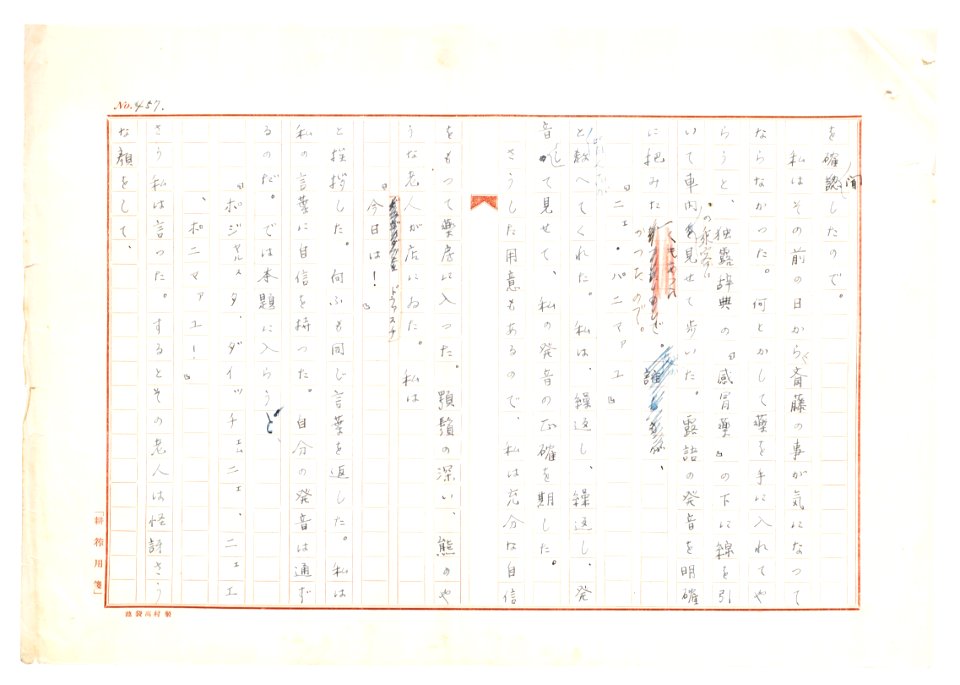 No.457.
を確認したので。
聞
私はその前の日から斎藤の事が気になつて
ならなかつた。何とかして薬を手に入れてや
らうと、独露辞典の『感冒薬』の下に線を引
いて車内を見せて歩いた。露語の発音を明確
の乗客に
に把みたかつたので。
『ニェ・パニマァユ』
と教へてくれた。私は、繰返し、繰返し、発
音して見せて、私の発音の正確を期した。
さうした用意もあるので、私は充分な自信
をもつて薬房に入つた。顎鬚の深い、熊のや
うな老人が店にゐた。私は
『今日は！』
ドラスチ
と挨拶した。向ふも同じ言葉を返した。私は
私の言葉に自信を持つた。自分の発音は通ず
るのだ。では本題に入らうと
『ポジャルスタ・ダイッチェ
ポニマァユ！』
さう私は言つた。するとその老人は怪訝さう
な顔をして、